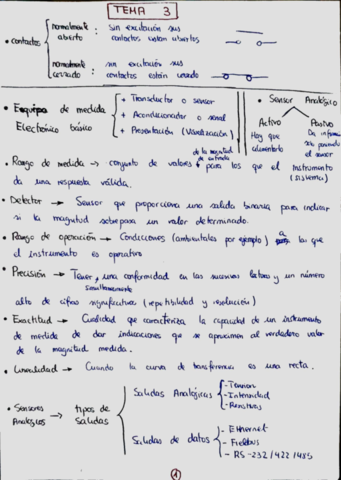 TEMA 3
• contactos
normalmente abierto : sin excitación sus
contactos están abiertos
normalmente cerrado : sin excitación sus
contactos están cerrado
• Equipo de medida
Electrónico básico
+ Transductor o sensor
+ Acondicionador o señal
+ Presentación (Visualización)
• Sensor Analógico
Activo
Hay que
alimentarlo
Pasivo
Da
solo poniendo
el sensor
de la magnitud
de entrada
• Rango de medida → conjunto de valores para los que el instrumento
(sistema)
da una respuesta válida.
• Detector → Sensor que proporciona una salida binaria para indicar
si la magnitud sobrepasa un valor determinado.
• Rango de operación → Condiciones (ambientales por ejemplo) a las que
el instrumento es operativo
• Precisión → Tener, una conformidad en las sucesivas lecturas y un número
simultáneamente
alto de cifras significativas (repetibilidad y resolución)
• Exactitud → Cualidad que caracteriza la capacidad de un instrumento
de medida de dar indicaciones que se aproximen al verdadero valor
de la magnitud medida.
• Linealidad → Cuando la curva de transferencia es una recta.
• Sensores
Analógicos → tipos de
Salidas
Salidas Analógicas
- Tension
- Intensidad
- Resistivos
Salidas de datos
- Ethernet
- Fieldbus
- RS-232/422/485
1